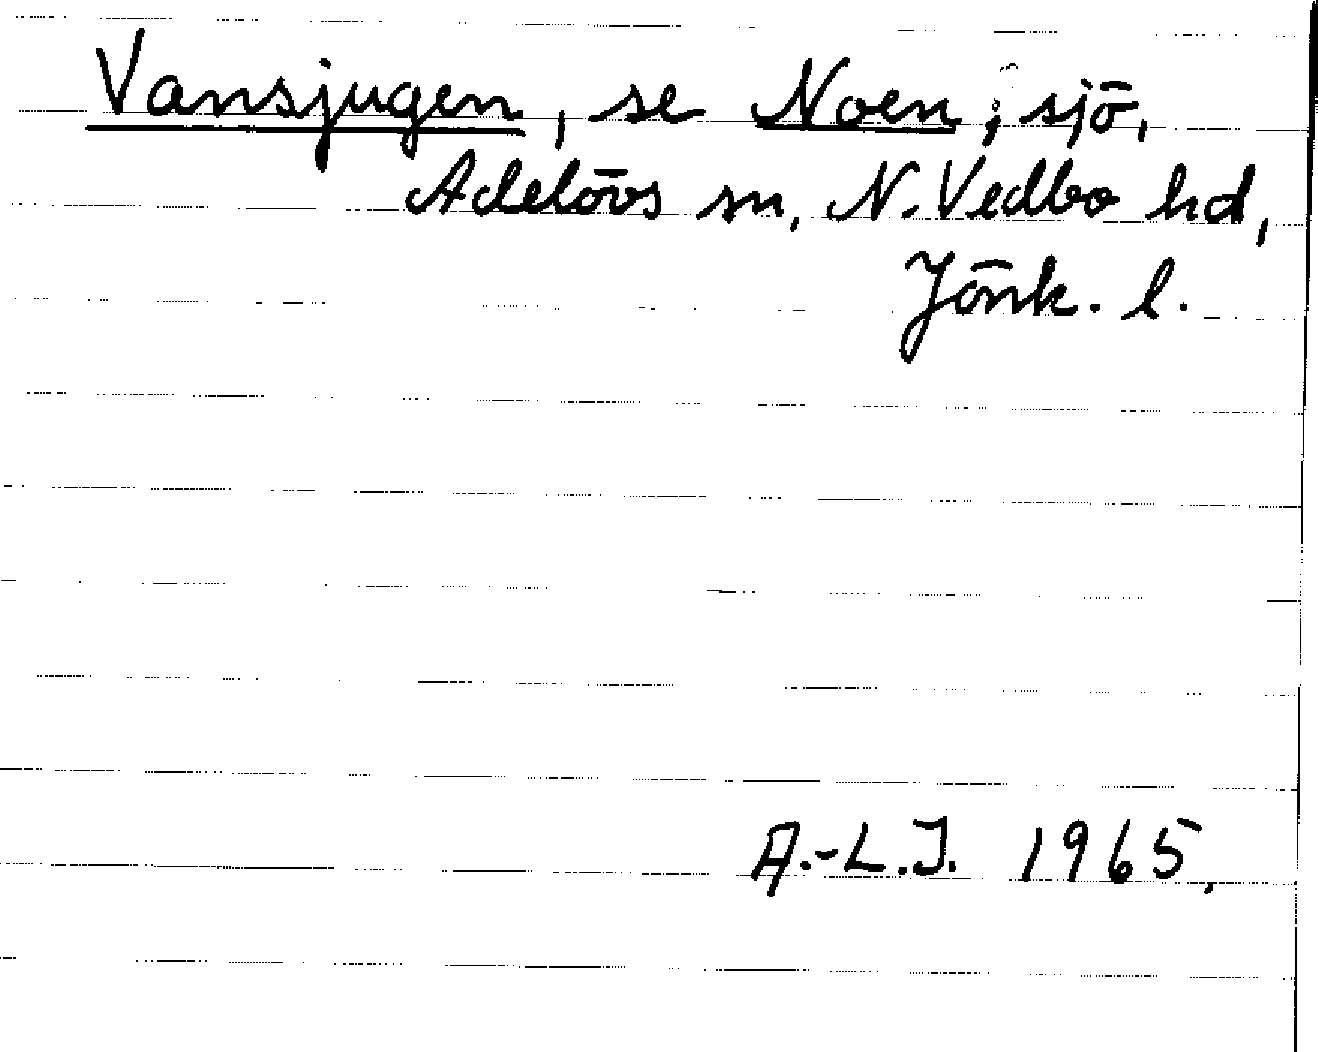 Vansjugen, se Noen; sjö,
Adelövs sn, N. Vedbo hd,
Jönk. l.
A.-L.J. 1965.